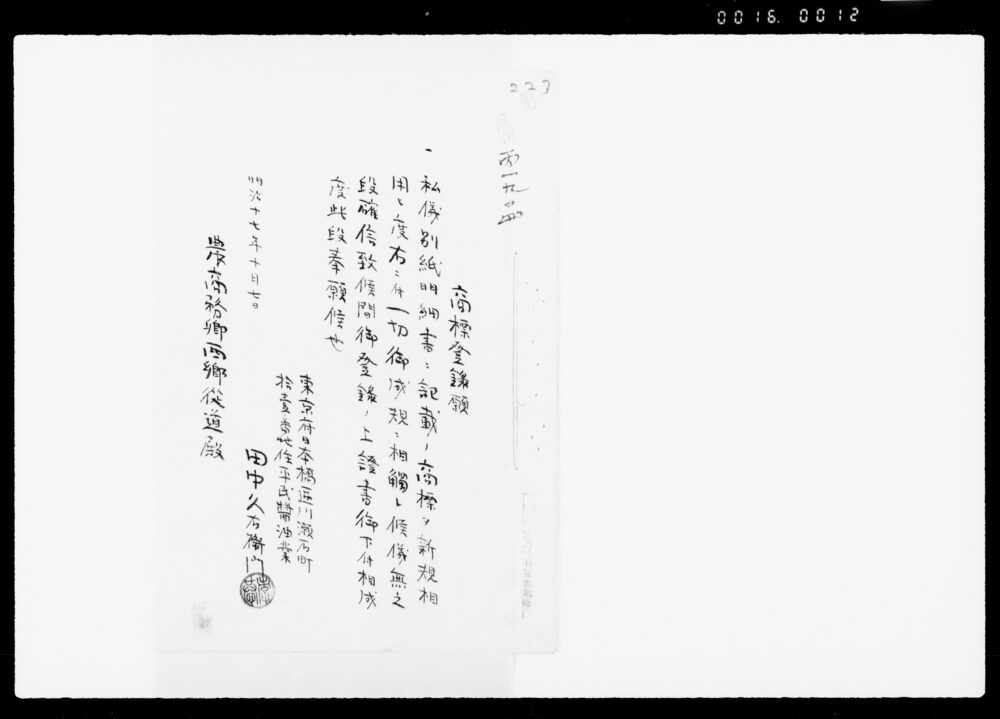 0016. 0012
223
丙一九〇四
商標登録願
一 私儀別紙明細書ニ記載ノ商標ヲ新規相
用ヒ度右ニ付一切御成規ニ相觸レ候儀無之
段確信致候間御登録ノ上證書御下付相成
度此段奉願候也
東京府日本橋區川瀬石町
拾壹番地住平民醬油業
田中久右衛門
明治十七年十月七日
農商務卿西郷從道殿